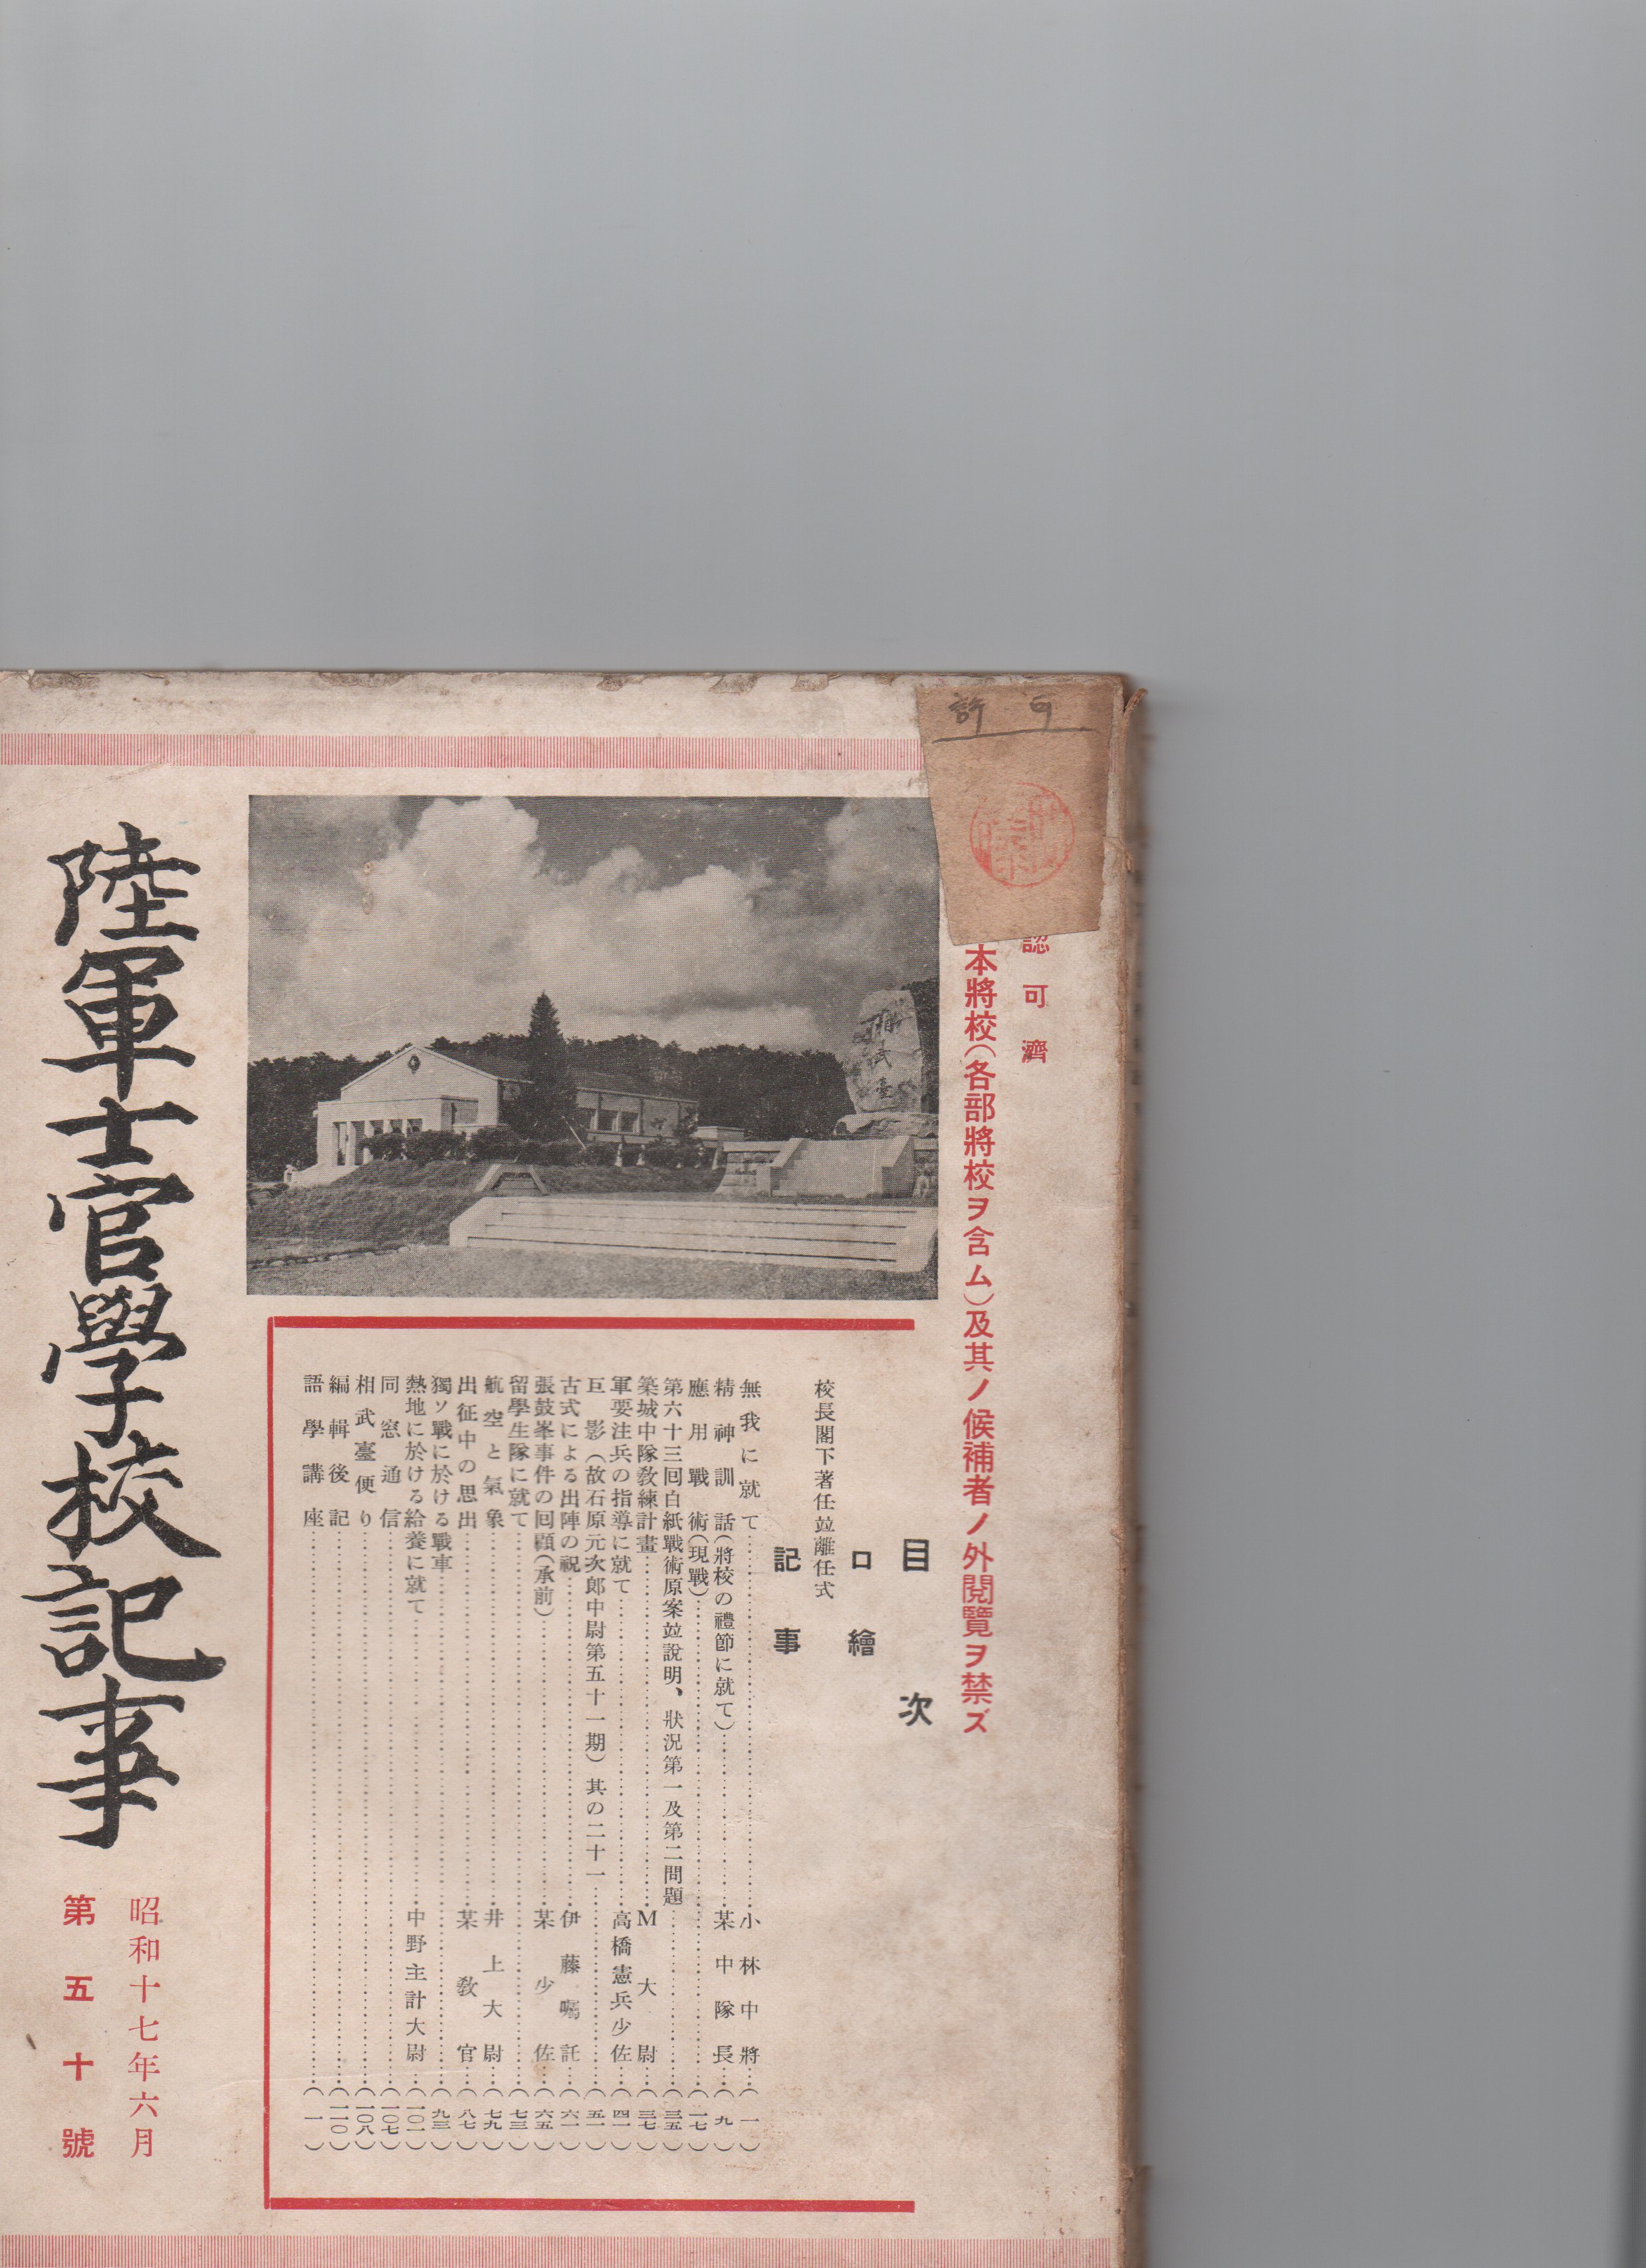 許可
認可濟
本將校(各部將校ヲ含ム)及其ノ候補者ノ外閱覽ヲ禁ズ
相武臺
目次
口繪
校長閣下著任竝離任式
記事
無我に就て……小林中將…(一)
精神訓話(將校の禮節に就て)……某中隊長…(九)
應用戰術(現戰)……(一七)
第六十三回白紙戰術原案竝說明、狀況第一及第二問題……(三五)
築城中隊敎練計畫……M大尉…(三七)
軍要注兵の指導に就て……高橋憲兵少佐…(四一)
巨影(故石原元次郎中尉第五十一期)其の二十一……(五一)
古式による出陣の祝……伊藤囑託…(六一)
張鼓峯事件の回顧(承前)……某少佐…(六五)
留學生隊に就て……(七三)
航空と氣象……井上大尉…(七九)
出征中の思出……某敎官…(八七)
獨ソ戰に於ける戰車……(九三)
熱地に於ける給養に就て……中野主計大尉…(一〇一)
同窓通信……(一〇七)
相武臺便り……(一〇八)
編輯後記……(一一〇)
語學講座……(一)
陸軍士官學校記事
昭和十七年六月
第五十號